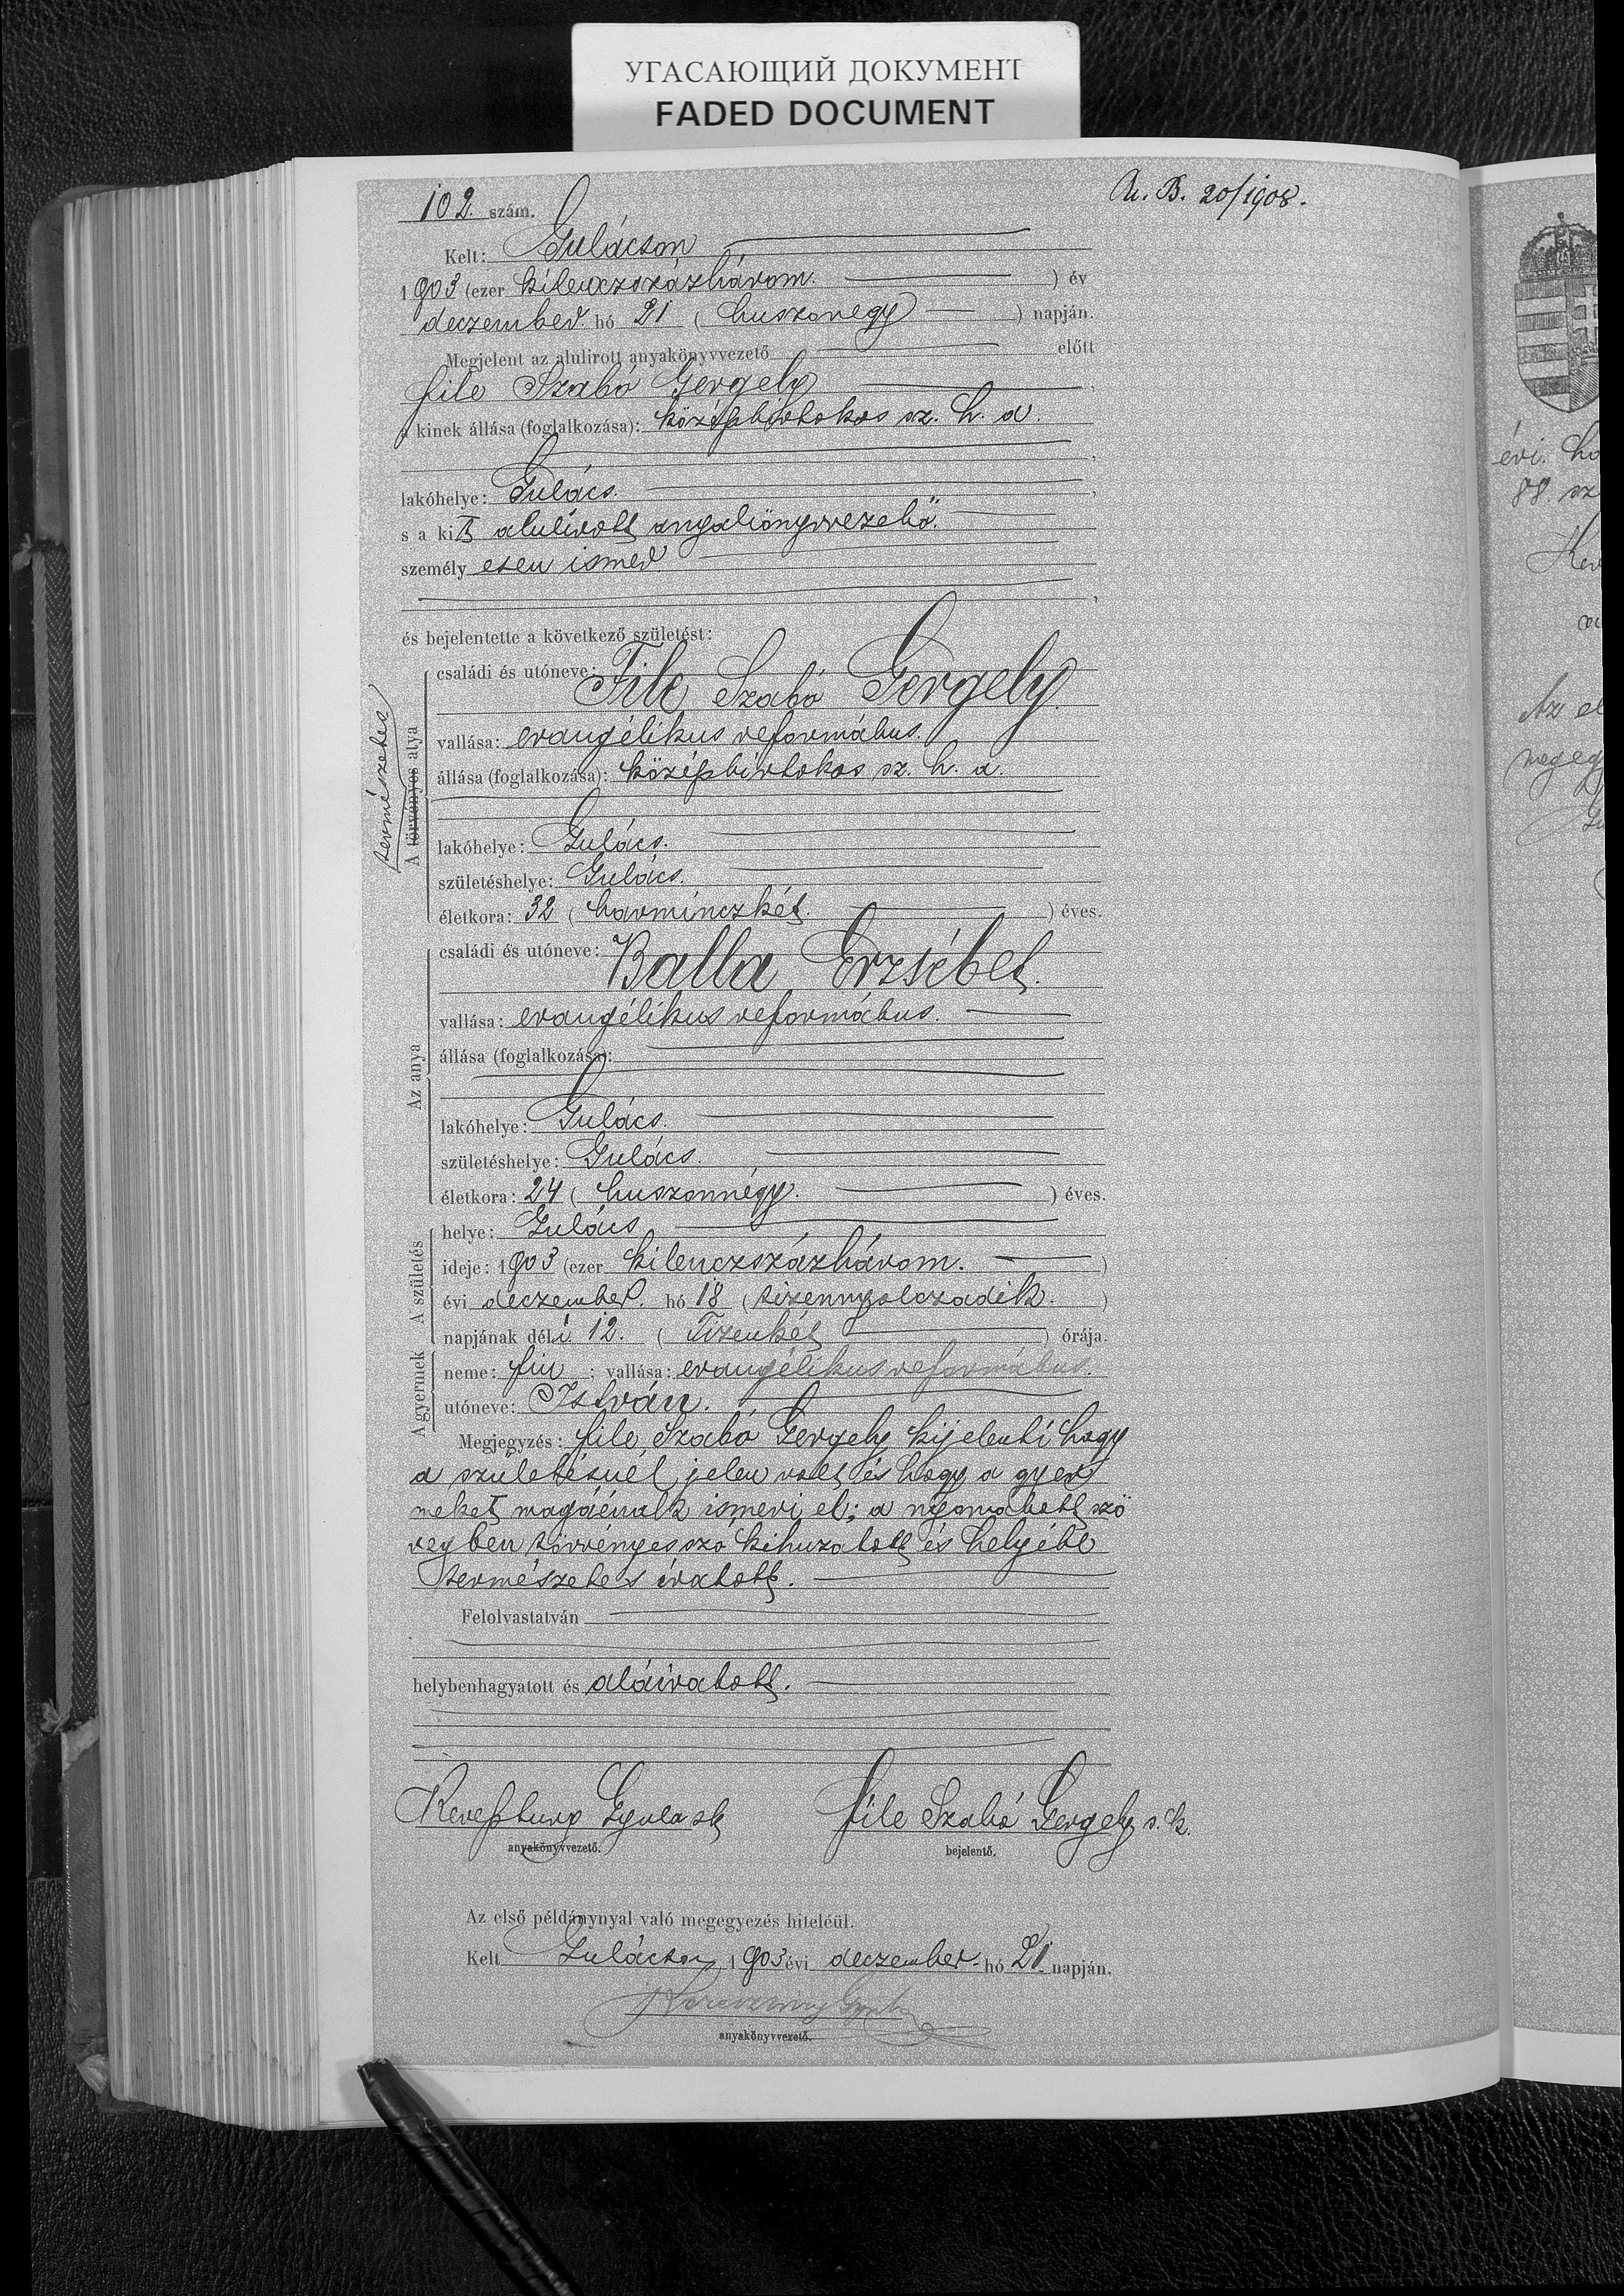 УГАСАЮЩИЙ ДОКУМЕНТ
FADED DOCUMENT
102. szám.
U. B. 20/1908.
Kelt: Gulácson
1903 (ezer kilenczszázhárom. ) év
deczember. hó 21 ( huszonegy ) napján.
Megjelent az alulirott anyakönyvvezető előtt
file Szabó Gergely ,
a kinek állása (foglalkozása): középbirtokos sz. h. a.
lakóhelye: Gulács.
s a kit alulirott anyakönyvvezető
személy esen ismer
és bejelentette a következő születést:
természetes
A törvényes atya
családi és utóneve: File Szabó Gergely.
vallása: evangélikus református.
állása (foglalkozása): középbirtokos sz. h. a.
lakóhelye: Gulács.
születéshelye: Gulács.
életkora: 32 ( harminczkét. ) éves.
Az anya
családi és utóneve: Balla Erzsébet.
vallása: evangélikus református.
állása (foglalkozása):
lakóhelye: Gulács.
születéshelye: Gulács.
életkora: 24 ( huszonnégy. ) éves.
A születés
helye: Gulács
ideje: 1903 (ezer kilenczszázhárom. )
évi deczember. hó 18 ( tizennyolczadik. )
napjának déli 12. ( Tizenkét ) órája.
A gyermek
neme: fiu ; vallása: evangélikus református.
utóneve: István.
Megjegyzés: file Szabó Gergely kijelenti hogy
a születésnél jelen volt és hogy a gyer
meket magáénak ismeri el; a nyomatott szö
vegben törvényes szo kihuzatott és helyébe
természetes iratott.
Felolvastatván
helybenhagyatott és aláiratott.
Gyula sk
anyakönyvvezető.
file Szabó Gergely s. k.
bejelentő.
Az első példánynyal való megegyezés hiteléül.
Kelt Gulácson 1903 évi deczember hó 21. napján.
anyakönyvvezető.
évi.
88. sz
Az el
megeg